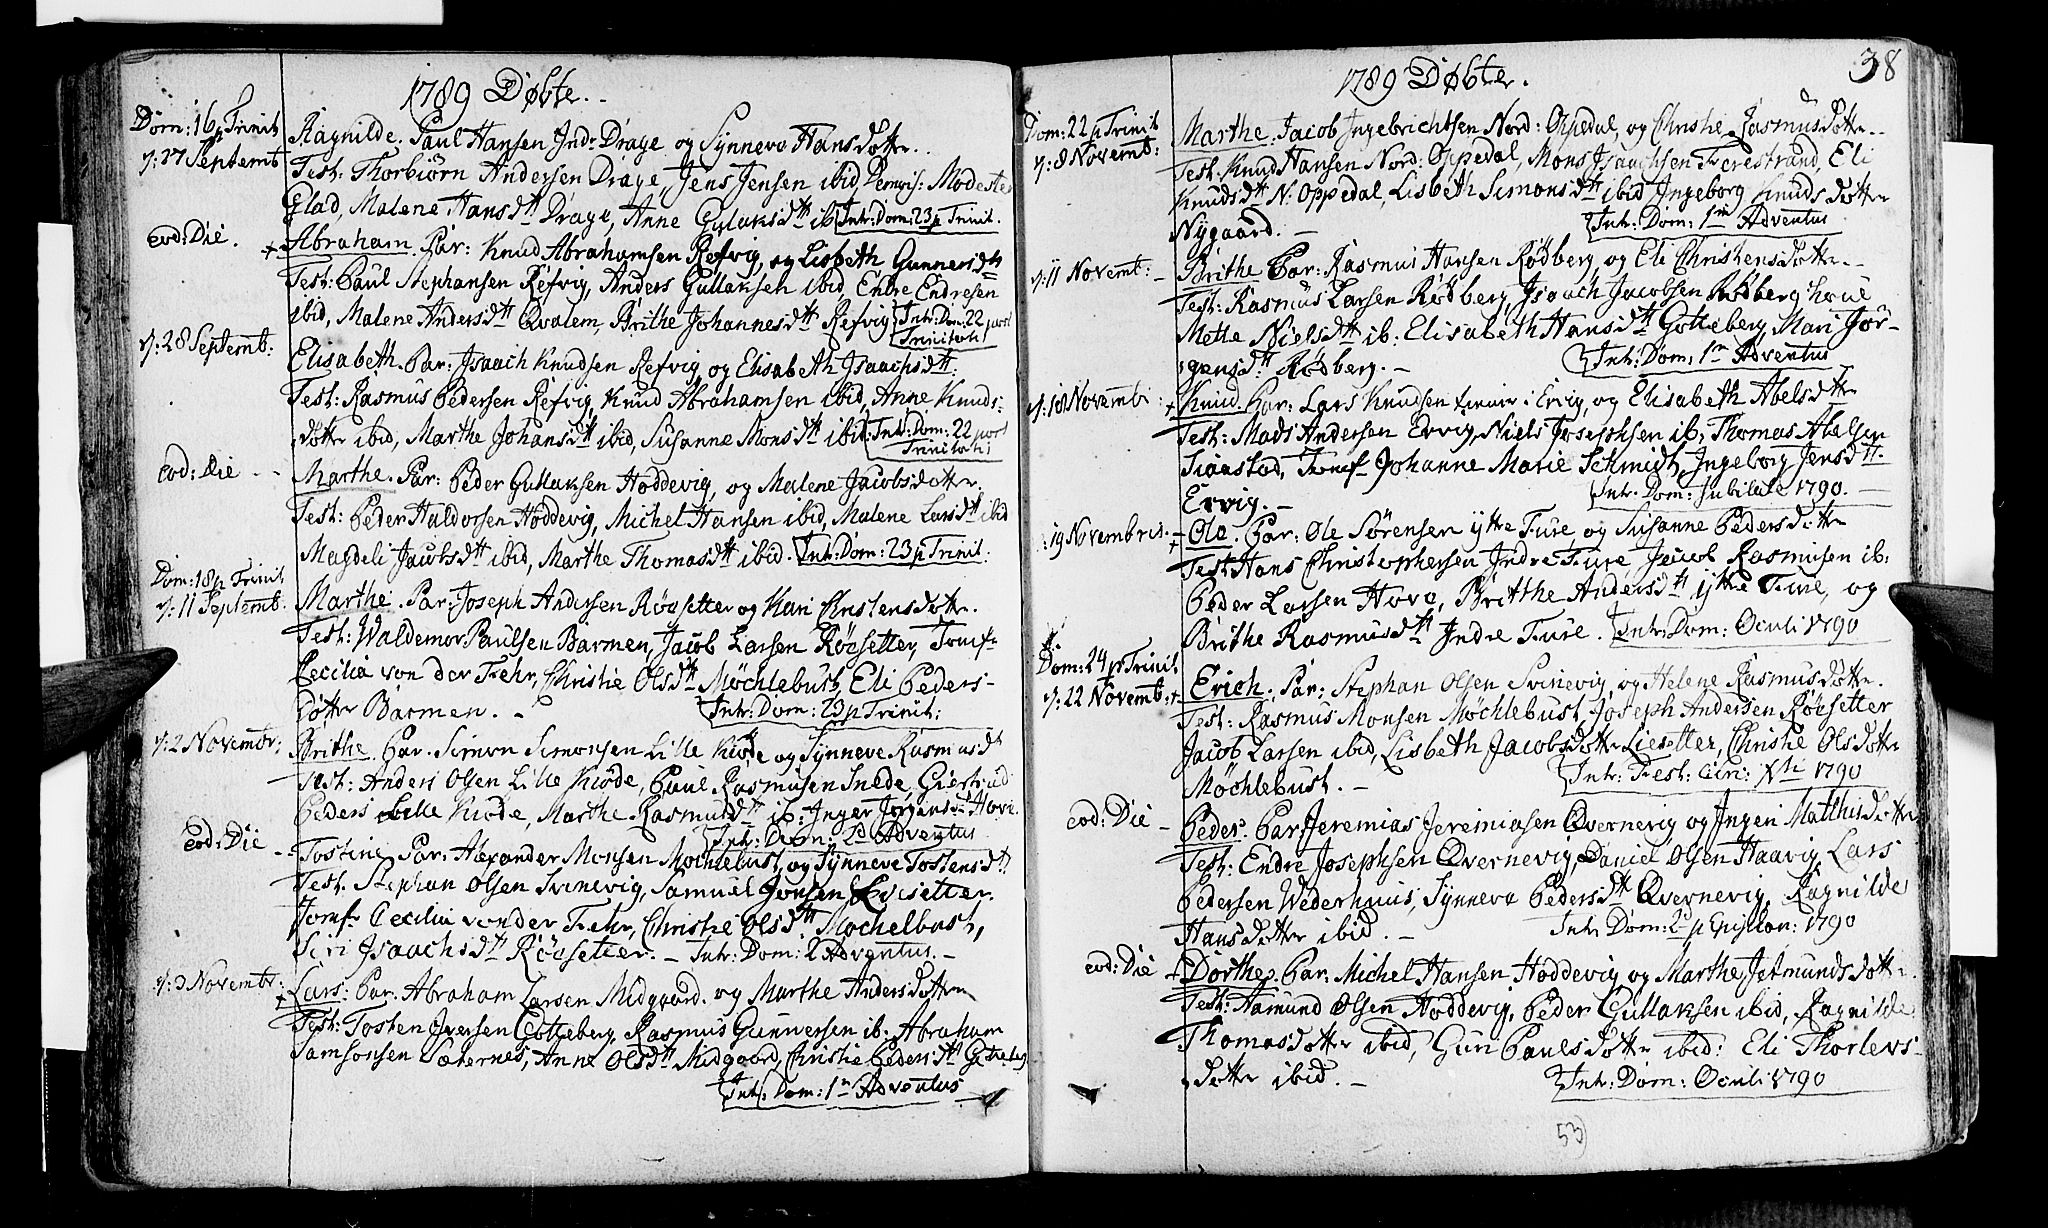 1789 Døbte.
Dom: 16 p Trinit
Ragnilde. Paul Hansen Ind: Drage og Synneva Hansdotter.
d: 27 Septemb
Test: Thorbiörn Andersen Drage, Jens Jensen ibid Demois: Modeste
Glad, Malene Hansdtt Drage, Anne Gullaksdtt ib Intr: Dom: 23 p Trinit.
eod: Die.
+ Abraham. Par: Knud Abrahamsen Refvig, og Lisbeth Gunnerisdtt
Test: Paul Stephansen Refvig, Anders Gullaksen ibid, Endre Endresen
ibid, Malene Andersdtt Qvalem, Brithe Johannesdtt Refvig Intr: Dom: 22 post
Trinitati
d: 28 Septembr:
Elisabeth. Par: Isaach Knudsen Refvig og Elisabeth Isaachsdtt.
Test: Rasmus Pedersen Refvig, Knud Abrahamsen ibid, Anne Knuds-
dotter ibid, Marthe Johansdtt ibid, Susanne Monsdtt ibid Intr: Dom: 22 post
Trinitati
eod: Die - -
Marthe. Par: Peder Gullaksen Hoddevig, og Malene Jacobsdotter.
Test: Peder Haldorsen Hoddevig, Michel Hansen ibid, Malene Larsdtt ibid
Magdeli Jacobsdtt ibid, Marthe Thomasdtt ibid. Intr: Dom: 23 p Trinit:
Dom: 18 p Trinit
d: 11 Septemb.
Marthe. Par: Joseph Andersen Röesetter og Kari Christensdotter.
Test: Waldemor Paulsen Barmen, Jacob Larsen Röesetter, Jomfr
Cecilia von der Fehr, Christie Olsdtt Möchlebust, Eli Peders-
dotter Barmen. -
Intr: Dom: 23 p Trinit:
d: 2 Novembr:
Brithe. Par. Simon Simonsen Lille Kiöde og Synneve Rasmusdt
Test: Anders Olsen Lille Kiöde, Paul Rasmusen Inede, Giertrud
Peders Lille Kiöde, Marthe Rasmusdtt ib: Inger Jörgensdtt Hove
Intr: Dom: 2 Adventus
eod: Die - -
Tostine. Par: Alexander Monsen Mochlebust, og Synneve Tostensdtt
Test. Stephan Olsen Svinevig, Samuel Jonsen Liesetter.
Jomfr Cecilia von der Fehr, Christie Olsdtt Mochelbust,
Siri Isaachsdtt Röesetter. - Intr: Dom: 2 Adventus. -
d: 3 Novembr:
+ Lars: Par. Abraham Larsen Midgaard. og Marthe Andersdotter
Test: Tosten Iversen Gotteberg, Rasmus Gunnersen ib. Abraham
Samsonsen Sæternes, Anne Olsdtt Midgaard, Christie Pedersdtt Gotteberg
Intr: Dom: 1n Adventus
38
1789 Døbte.
Dom: 22 p Trinit
d: 8 Novembr:
Marthe. Jacob Ingebrichtsen Nord: Oppedal, og Christie Rasmusdotter.
Test. Knud Hansen Nord: Oppedal, Mons Isaachsen Ferestrand, Eli
Knudsdtt N: Oppedal, Lisbeth Simonsdtt ibid Ingeborg Knudsdotter
Nygaard. -
Intr: Dom: 1n Adventus
d: 11 Novembr: -
Brithe Par: Rasmus Hansen Rödberg, og Eli Christensdotter.
Test: Rasmus Larsen Rödberg, Isaach Jacobsen Rödberghoue
Mette Nielsdtt ib: Elisabeth Hansdtt Gotteberg, Mari Jör-
gensdtt Rödberg. -
Intr: Dom: 1n Adventus
d: 18 Novembr:
+ Knud. Par: Lars Knudsen Ervig, og Elisabeth Abelsdtt
Test: Mads Andersen Ervig, Niels Josephsen ib: Thomas Abelsen
Jomf Johanne Marie Schmidt, Ingeborg Jensdtt.
Ervig. -
Intr: Dom: Jubilate 1790.
: 19 Novembris
+ Ole. Par: Ole Sörensen ytre Fure, og Susanne Pedersdotter
Test Hans Christophersen Indre Fure Jacob Rasmusen ib:
Peder Larsen Hove, Britthe Andersdtt ytre Fure, og
Brithe Rasmusdtt Indre Fure. Intr: Dom: Oculi 1790
Dom: 24 p Trinit
d: 22 Novembr: +
Erich. Par: Stephan Olsen Svinevig, og Helene Rasmusdotter.
Test: Rasmus Monsen Möchlebust, Joseph Andersen Röesetter
Jacob Larsen ibid, Lisbeth Jacobsdotter Liesetter, Christie Olsdotter
Möchlebust. -
Intr: Fest: Circ: Xti 1790
eod: Die -
Peder. Par Jeremias Jeremiasen Qvernevig og Ingen Matthisdotter
Test: Endre Josephsen Qvernevig, Daniel Olsen Haavig, Lars
Pedersen Wederhuus, Synneva Pedersdtt Qvernevig, Ragnilde
Hansdotter ibid. -
Intr Dom: 2 p Epiphan: 1790
eod: Die
+ Dorthe. Par: Michel Hansen Hoddevig og Marthe Jetmundsdotter.
Test: Aamund Olsen Hoddevig, Peder Gullaksen ibid, Ragnilde
Thomasdotter ibid, Guri Paulsdotter ibid: Eli Thorlevs-
dotter ibid. -
Intr: Dom: Oculi 1790
53